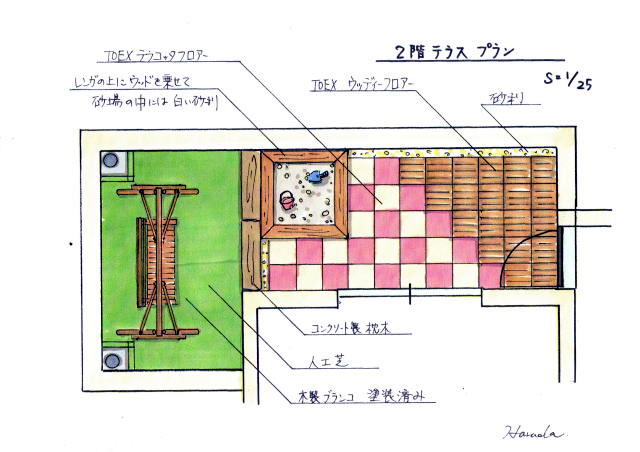 2階 テラス プラン
S=1/25
TOEX テラコッタフロアー
レンガの上にウッドを乗せて
砂場の中には白い砂利
TOEX ウッディーフロアー
砂利
コンクリート製 枕木
人工芝
木製ブランコ 塗装済み
Harada